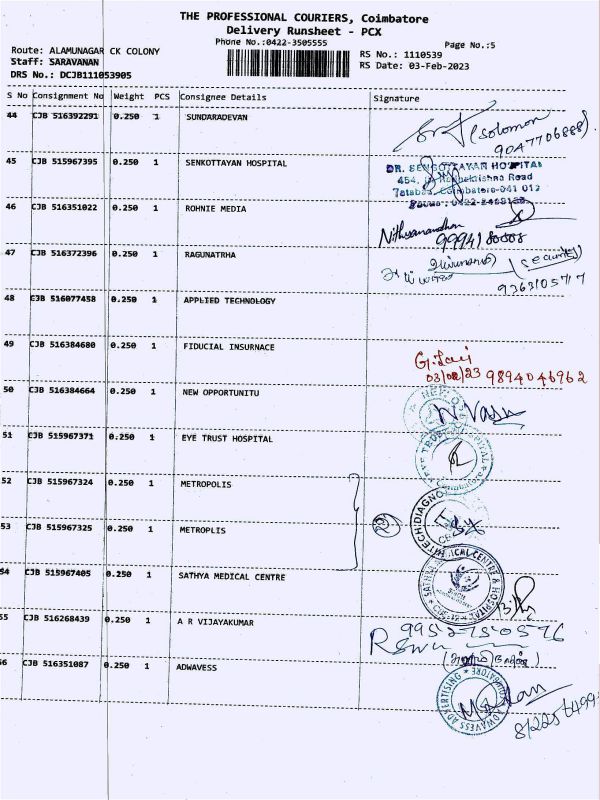 THE PROFESSIONAL COURIERS, Coimbatore
Delivery Runsheet - PCX
Phone No.:0422-3505555
Page No.:5
Route: ALAMUNAGAR CK COLONY
Staff: SARAVANAN
DRS No.: DCJB111053905
RS No.: 1110539
RS Date: 03-Feb-2023
S No Consignment No Weight PCS Consignee Details Signature
44 CJB 516392291 0.250 1 SUNDARADEVAN
(Solomon
9047706888).
45 CJB 515967395 0.250 1 SENKOTTAYAN HOSPITAL
DR. SENGOTTAYAN HOSPITAL
454, Ramakrishna Road
Tatabad, Coimbatore-641 012
46 CJB 516351022 0.250 1 ROHNIE MEDIA
Nithyanandhan
47 CJB 516372396 0.250 1 RAGUNATRHA
(Security)
9363105717
48 CJB 516077458 0.250 1 APPLIED TECHNOLOGY
49 CJB 516384680 0.250 1 FIDUCIAL INSURNACE
03/02/23 9894046962
50 CJB 516384664 0.250 1 NEW OPPORTUNITU
N. Vasu
51 CJB 515967371 0.250 1 EYE TRUST HOSPITAL
52 CJB 515967324 0.250 1 METROPOLIS
53 CJB 515967325 0.250 1 METROPLIS
2
54 CJB 515967405 0.250 1 SATHYA MEDICAL CENTRE
SATHYA MEDICAL CENTRE & HOSPITAL
55 CJB 516268439 0.250 1 A R VIJAYAKUMAR
9952750576
56 CJB 516351087 0.250 1 ADWAVESS
ADWAVESS ADVERTISING * COIMBATORE